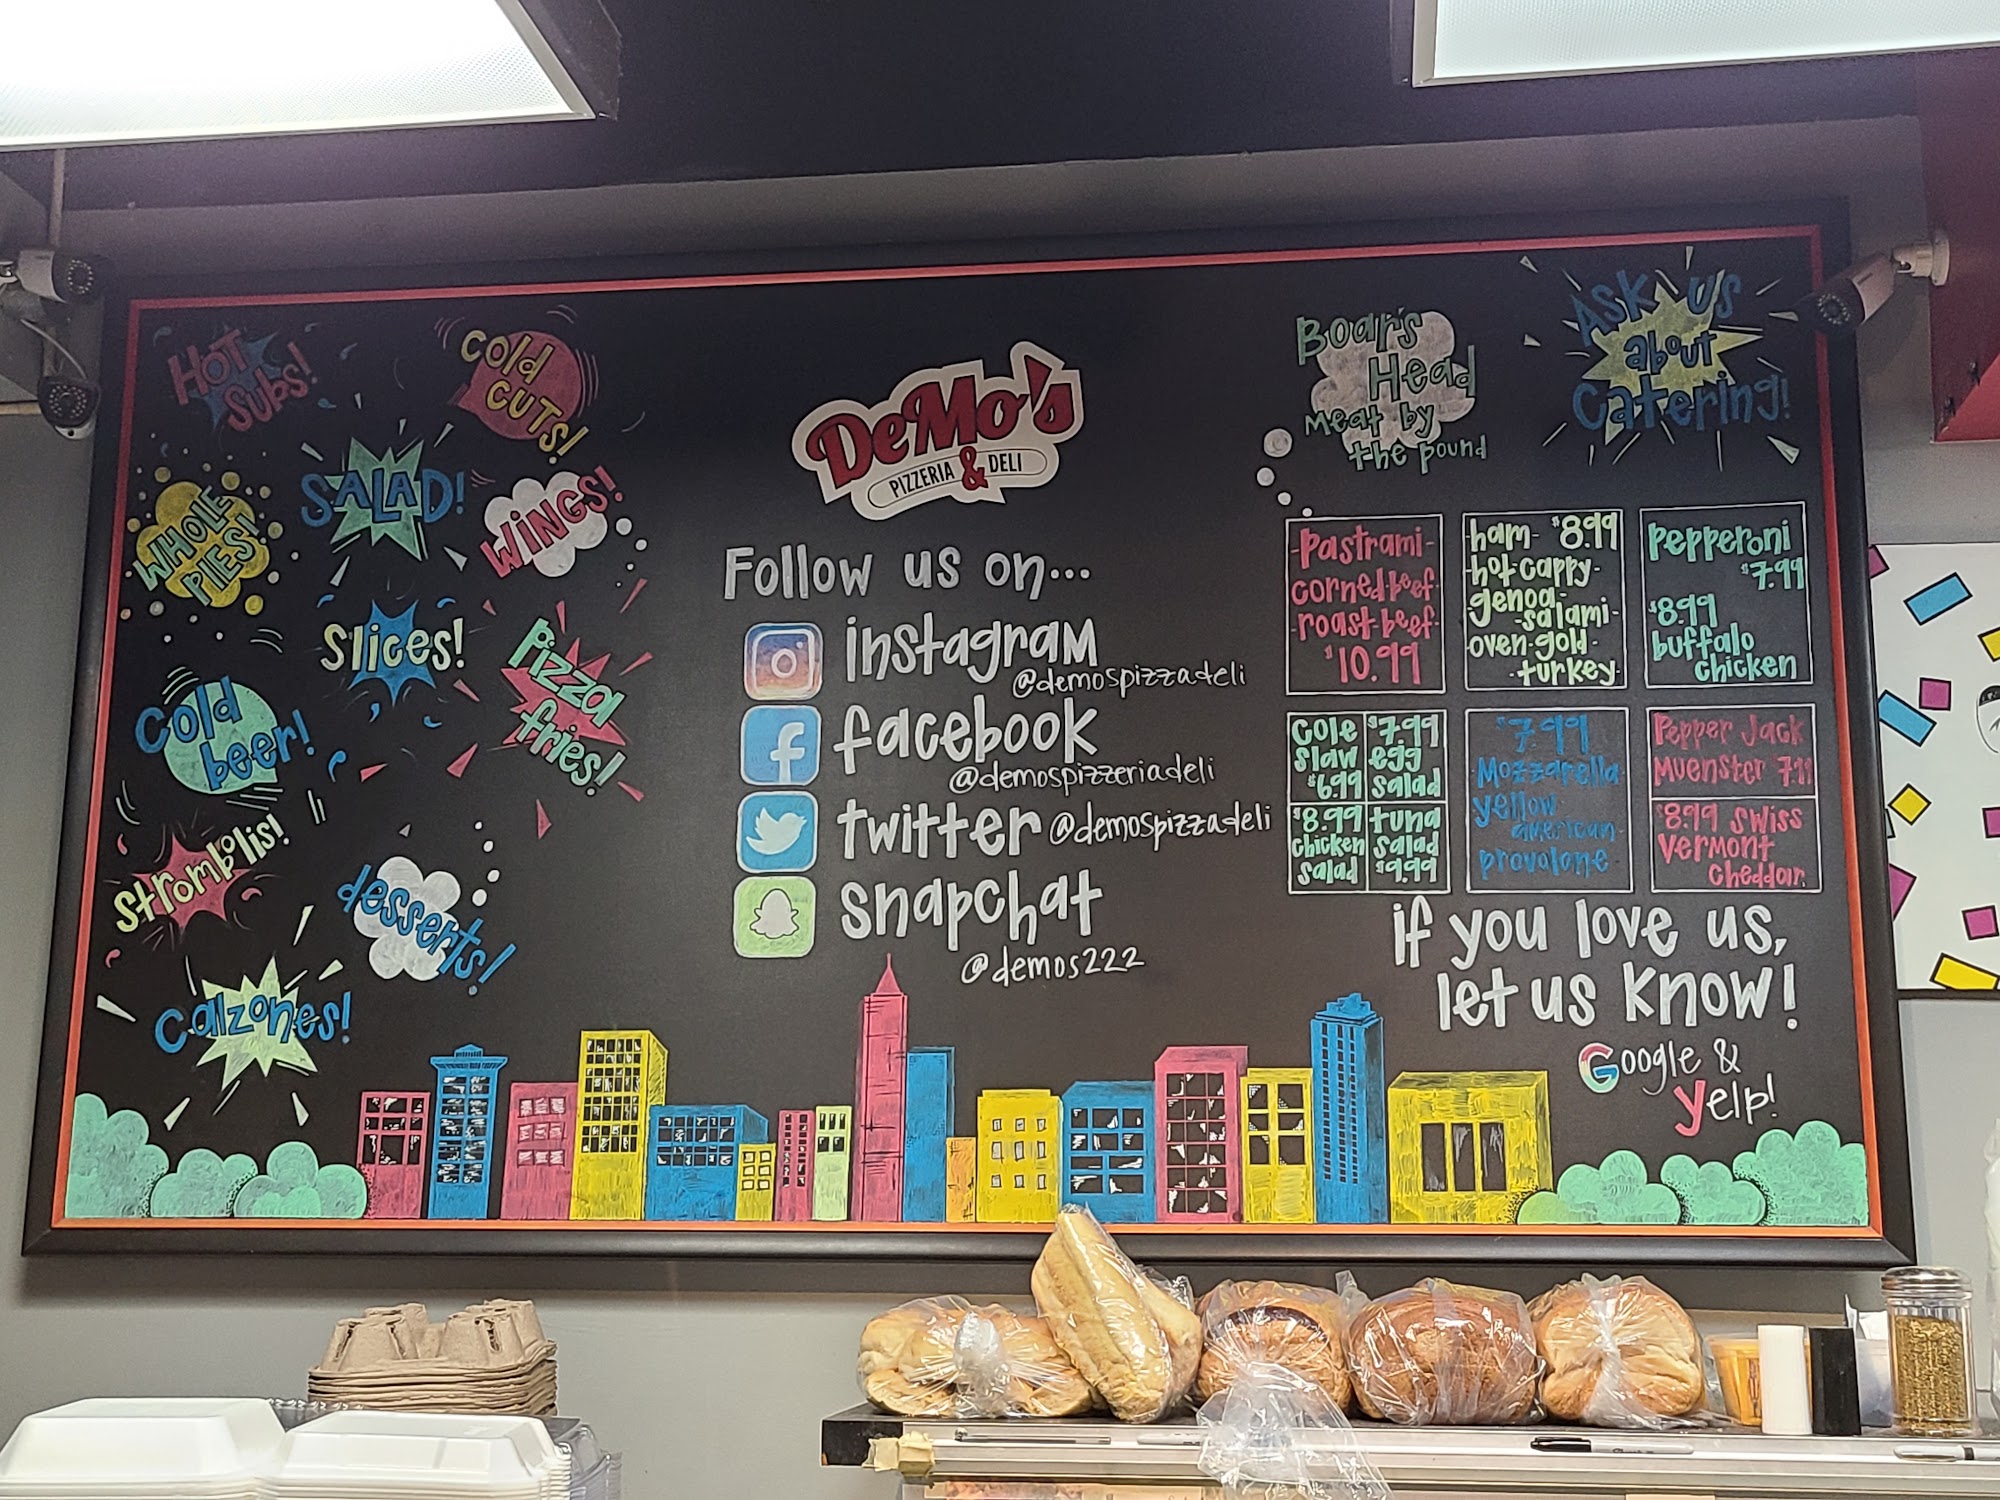 HOT
SUBS!
COLD
CUTS!
WHOLE
PIES!
SALAD!
WINGS!
Slices!
Pizza
fries!
Cold
beer!
strombolis!
desserts!
Calzones!
DeMo's
PIZZERIA & DELI
Follow us on...
instagram
@demospizzadeli
facebook
@demospizzeriadeli
twitter @demospizzadeli
snapchat
@demos222
Boar's
Head
Meat by
the pound
ASK US
about
Catering!
-Pastrami-
corned-beef
-roast-beef-
$10.99
-ham- $8.99
-hot-cappy-
genoa-
-salami-
oven-gold-
-turkey-
Pepperoni
$7.99
$8.99
buffalo
chicken
Cole
Slaw
$6.99
$7.99
egg
salad
$8.99
chicken
salad
tuna
salad
$9.99
$7.99
Mozzarella
yellow
american
provolone
Pepper Jack
Muenster 7.99
$8.99 Swiss
Vermont
Cheddar
if you love us,
let us know!
Google &
Yelp!